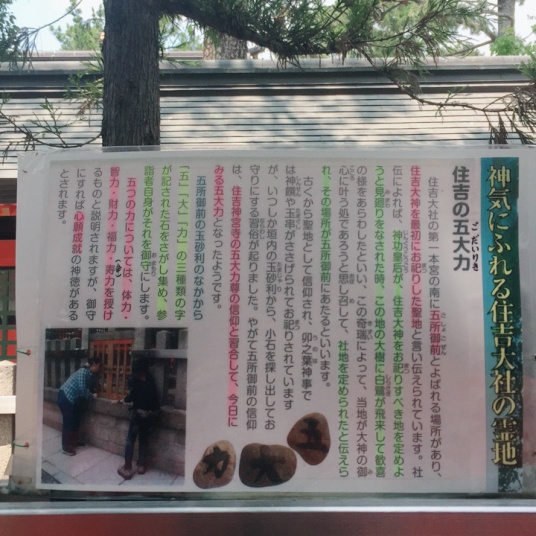 神気にふれる住吉大社の霊地
住吉の五大力
ごだいりき
住吉大社の第一本宮の南に五所御前とよばれる場所があり、
住吉大神を最初にお祀りした聖地と言い伝えられています。社
伝によれば、神功皇后が、住吉大神をお祀りすべき地を定めよ
うと見廻りをなされた時、この地の大樹に白鷺が飛来して歓喜
の様をあらわしたといい、この奇瑞によって、当地が大神の御
心に叶う処であろうと思し召して、社地を定められたと伝えら
れ、その場所が五所御前にあたるといいます。
古くから聖地として信仰され、卯之葉神事で
は神饌や玉串がささげられてお祀りされています
が、いつしか垣内の玉砂利から、小石を探し出してお
守りにする習俗が起りました。やがて五所御前の信仰
は、住吉神宮寺の五大力尊の信仰と習合して、今日に
みる五大力となったようです。
五所御前の玉砂利のなかから
「五」「大」「力」の三種類の字
が記された石をさがし集め、参
詣者自身がそれを御守にします。
五つの力については、体力・
智力・財力・福力・寿力を授け
るものと説明されますが、御守
にすれば心願成就の神徳がある
とされます。
五
大
力